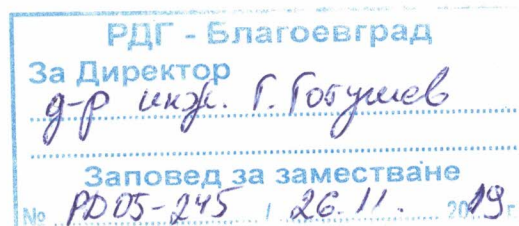 РДГ - Благоевград
За Директор
д-р инж. Г. Гогушев
Заповед за заместване
№ РД05-245 / 26.11. 2019г.